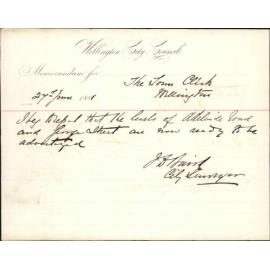 Wellington City Council
Memorandum for
The Town Clerk
27 June 1881
Wellington
I beg to report that the levels of Adelaide Road
and George Street are now ready to be
advertised
J D Baird
City Surveyor